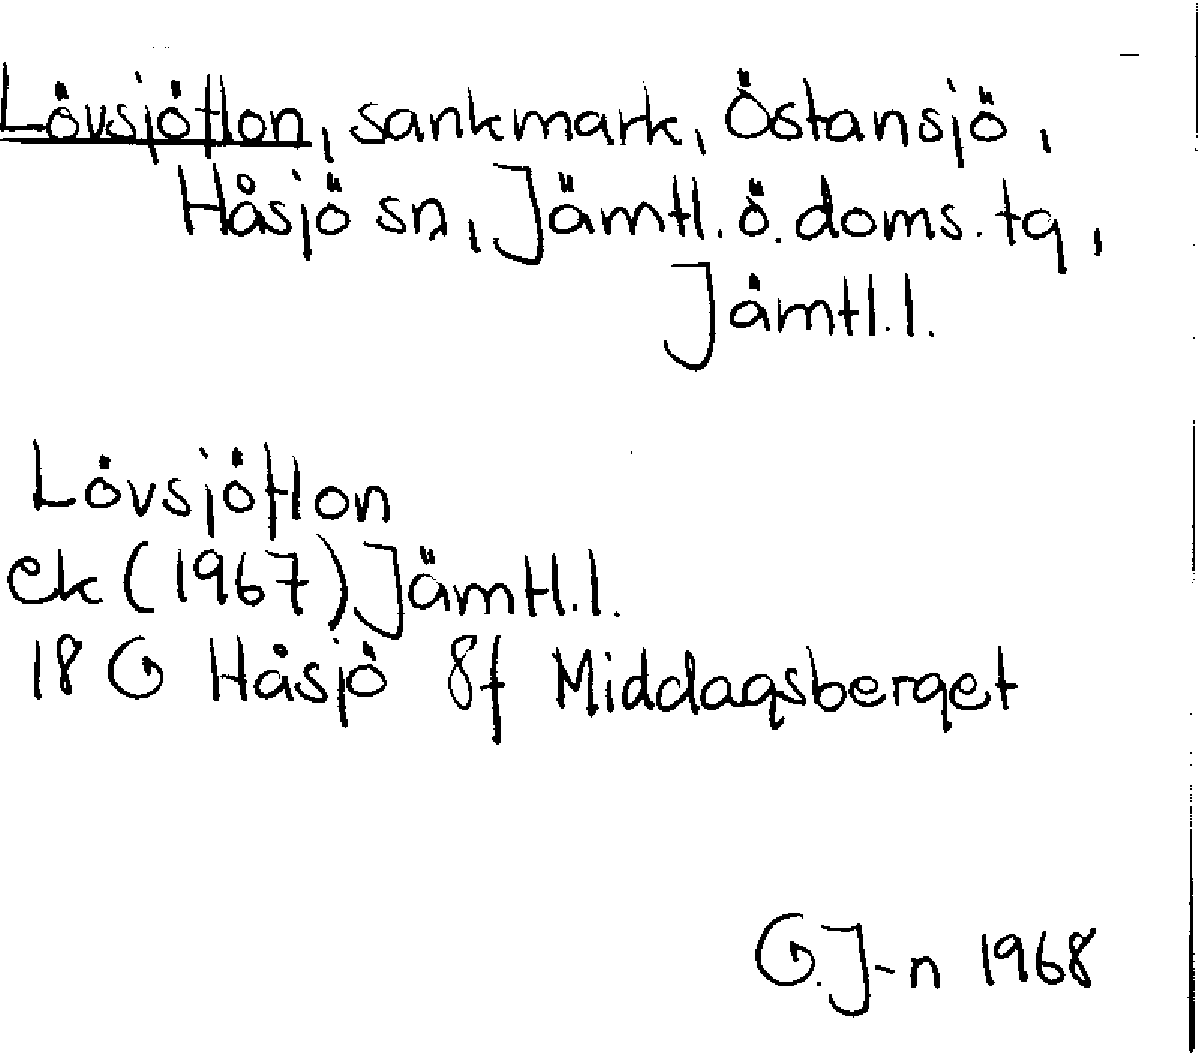 Lövsjöflon, sankmark, Östansjö,
Håsjö sn, Jämtl. ö. doms. tg,
Jämtl. l.
Lövsjöflon
ek (1967) Jämtl. l.
18 G Håsjö 8f Middagsberget
G. J-n 1968